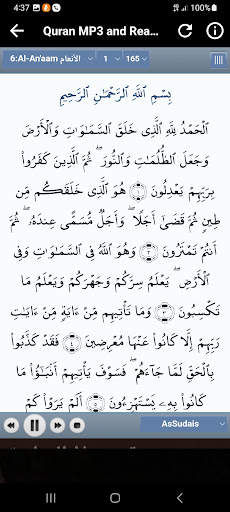 4:37 100%
Quran MP3 and Rea...
6:Al-An'aam الأنعام 1 165
بِسْمِ ٱللَّهِ ٱلرَّحْمَـٰنِ ٱلرَّحِيمِ
ٱلْحَمْدُ لِلَّهِ ٱلَّذِى خَلَقَ ٱلسَّمَـٰوَٰتِ وَٱلْأَرْضَ
وَجَعَلَ ٱلظُّلُمَـٰتِ وَٱلنُّورَ ۖ ثُمَّ ٱلَّذِينَ كَفَرُوا۟
بِرَبِّهِمْ يَعْدِلُونَ ﴿١﴾ هُوَ ٱلَّذِى خَلَقَكُم مِّن
طِينٍ ثُمَّ قَضَىٰٓ أَجَلًا ۖ وَأَجَلٌ مُّسَمًّى عِندَهُۥ ۖ ثُمَّ
أَنتُمْ تَمْتَرُونَ ﴿٢﴾ وَهُوَ ٱللَّهُ فِى ٱلسَّمَـٰوَٰتِ وَفِى
ٱلْأَرْضِ ۖ يَعْلَمُ سِرَّكُمْ وَجَهْرَكُمْ وَيَعْلَمُ مَا
تَكْسِبُونَ ﴿٣﴾ وَمَا تَأْتِيهِم مِّنْ ءَايَةٍ مِّنْ ءَايَـٰتِ
رَبِّهِمْ إِلَّا كَانُوا۟ عَنْهَا مُعْرِضِينَ ﴿٤﴾ فَقَدْ كَذَّبُوا۟
بِٱلْحَقِّ لَمَّا جَآءَهُمْ ۖ فَسَوْفَ يَأْتِيهِمْ أَنۢبَـٰٓؤُا۟ مَا
كَانُوا۟ بِهِۦ يَسْتَهْزِءُونَ ﴿٥﴾ أَلَمْ يَرَوْا۟ كَمْ
AsSudais